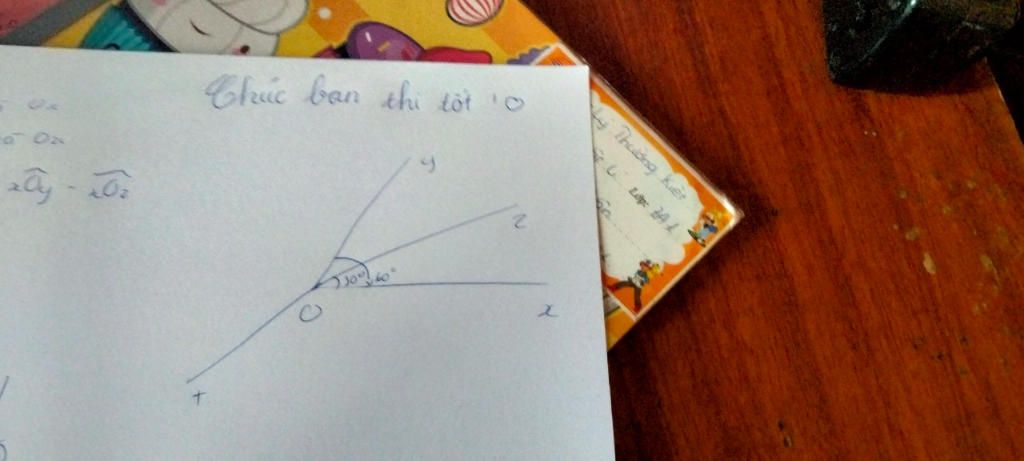 Chúc bạn thi tốt !O
Ox
Ox
xOy - xOz
y
z
30° 60°
O
x
T
Lý Thường Kiệt